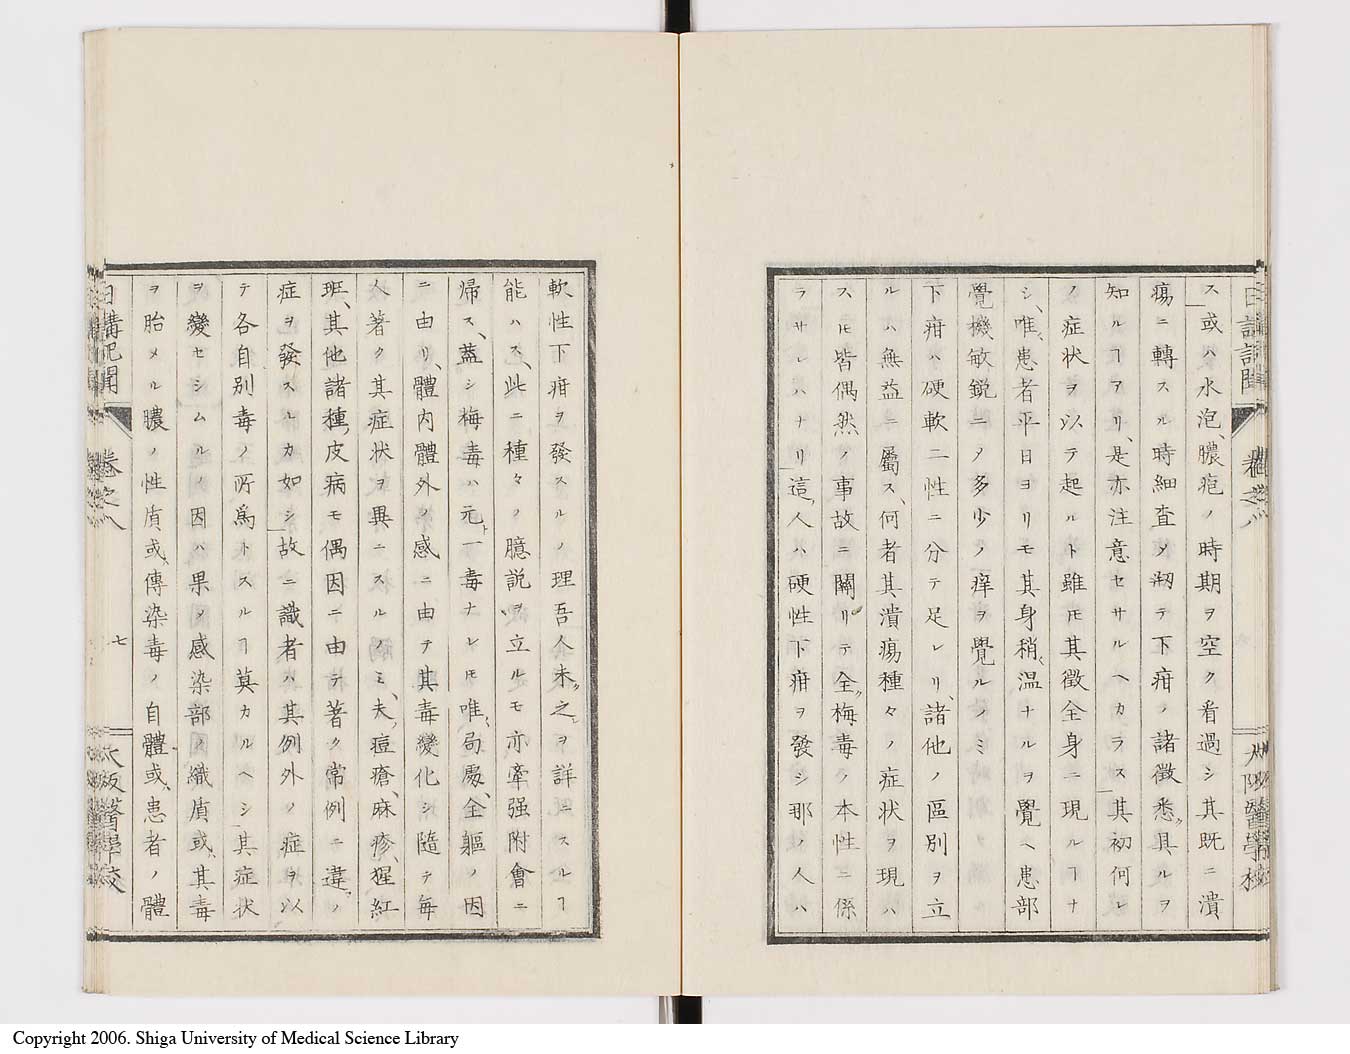 ス或ハ水泡、膿疱ノ時期ヲ空ク看過シ其既ニ潰
瘍ニ轉スル時細査メ刱テ下疳ノ諸徴悉ク具ルヲ
知ルヿアリ、是亦注意セサルヘカラス其初何レ
ノ症状ヲ以テ起ルト雖𪜈其徴全身ニ現ルヿナ
シ、唯、患者平日ヨリモ其身稍、温ナルヲ覺ヘ患部
覺機敏鋭ニノ多少ノ痒ヲ覺ルノミ
下疳ハ硬軟二性ニ分テ足レリ、諸他ノ區別ヲ立
ルハ無益ニ屬ス、何者其潰瘍種々ノ症状ヲ現ハ
ス𪜈皆偶然ノ事故ニ關リテ全ク梅毒ノ本性ニ係
ラサレハナリ這ノ人ハ硬性下疳ヲ發シ那ノ人ハ
軟性下疳ヲ發スルノ理吾人未タ之ヲ詳ニスルヿ
能ハス、此ニ種々ノ臆説ヲ立ルモ亦牽强附會ニ
帰ス、蓋シ梅毒ハ元ト一毒ナレ𪜈唯、局處、全軀ノ因
ニ由リ、體内體外ノ感ニ由テ其毒變化シ隨テ毎
人著ク其症状ヲ異ニスルノミ、夫レ痘瘡、麻疹、猩紅
斑、其他諸種ノ皮病モ偶因ニ由テ著ク常例ニ違フノ
症ヲ發スルカ如シ故ニ識者ハ其例外ノ症ヲ以
テ各自別毒ノ所爲トスルヿ莫カルヘシ其症状
ヲ變セシムルノ因ハ果メ感染部ノ織質或ハ其毒
ヲ胎メル膿ノ性質或ハ傳染毒ノ自體或ハ患者ノ體
日講記聞
卷之八
七
大阪醫學校
Copyright 2006. Shiga University of Medical Science Library